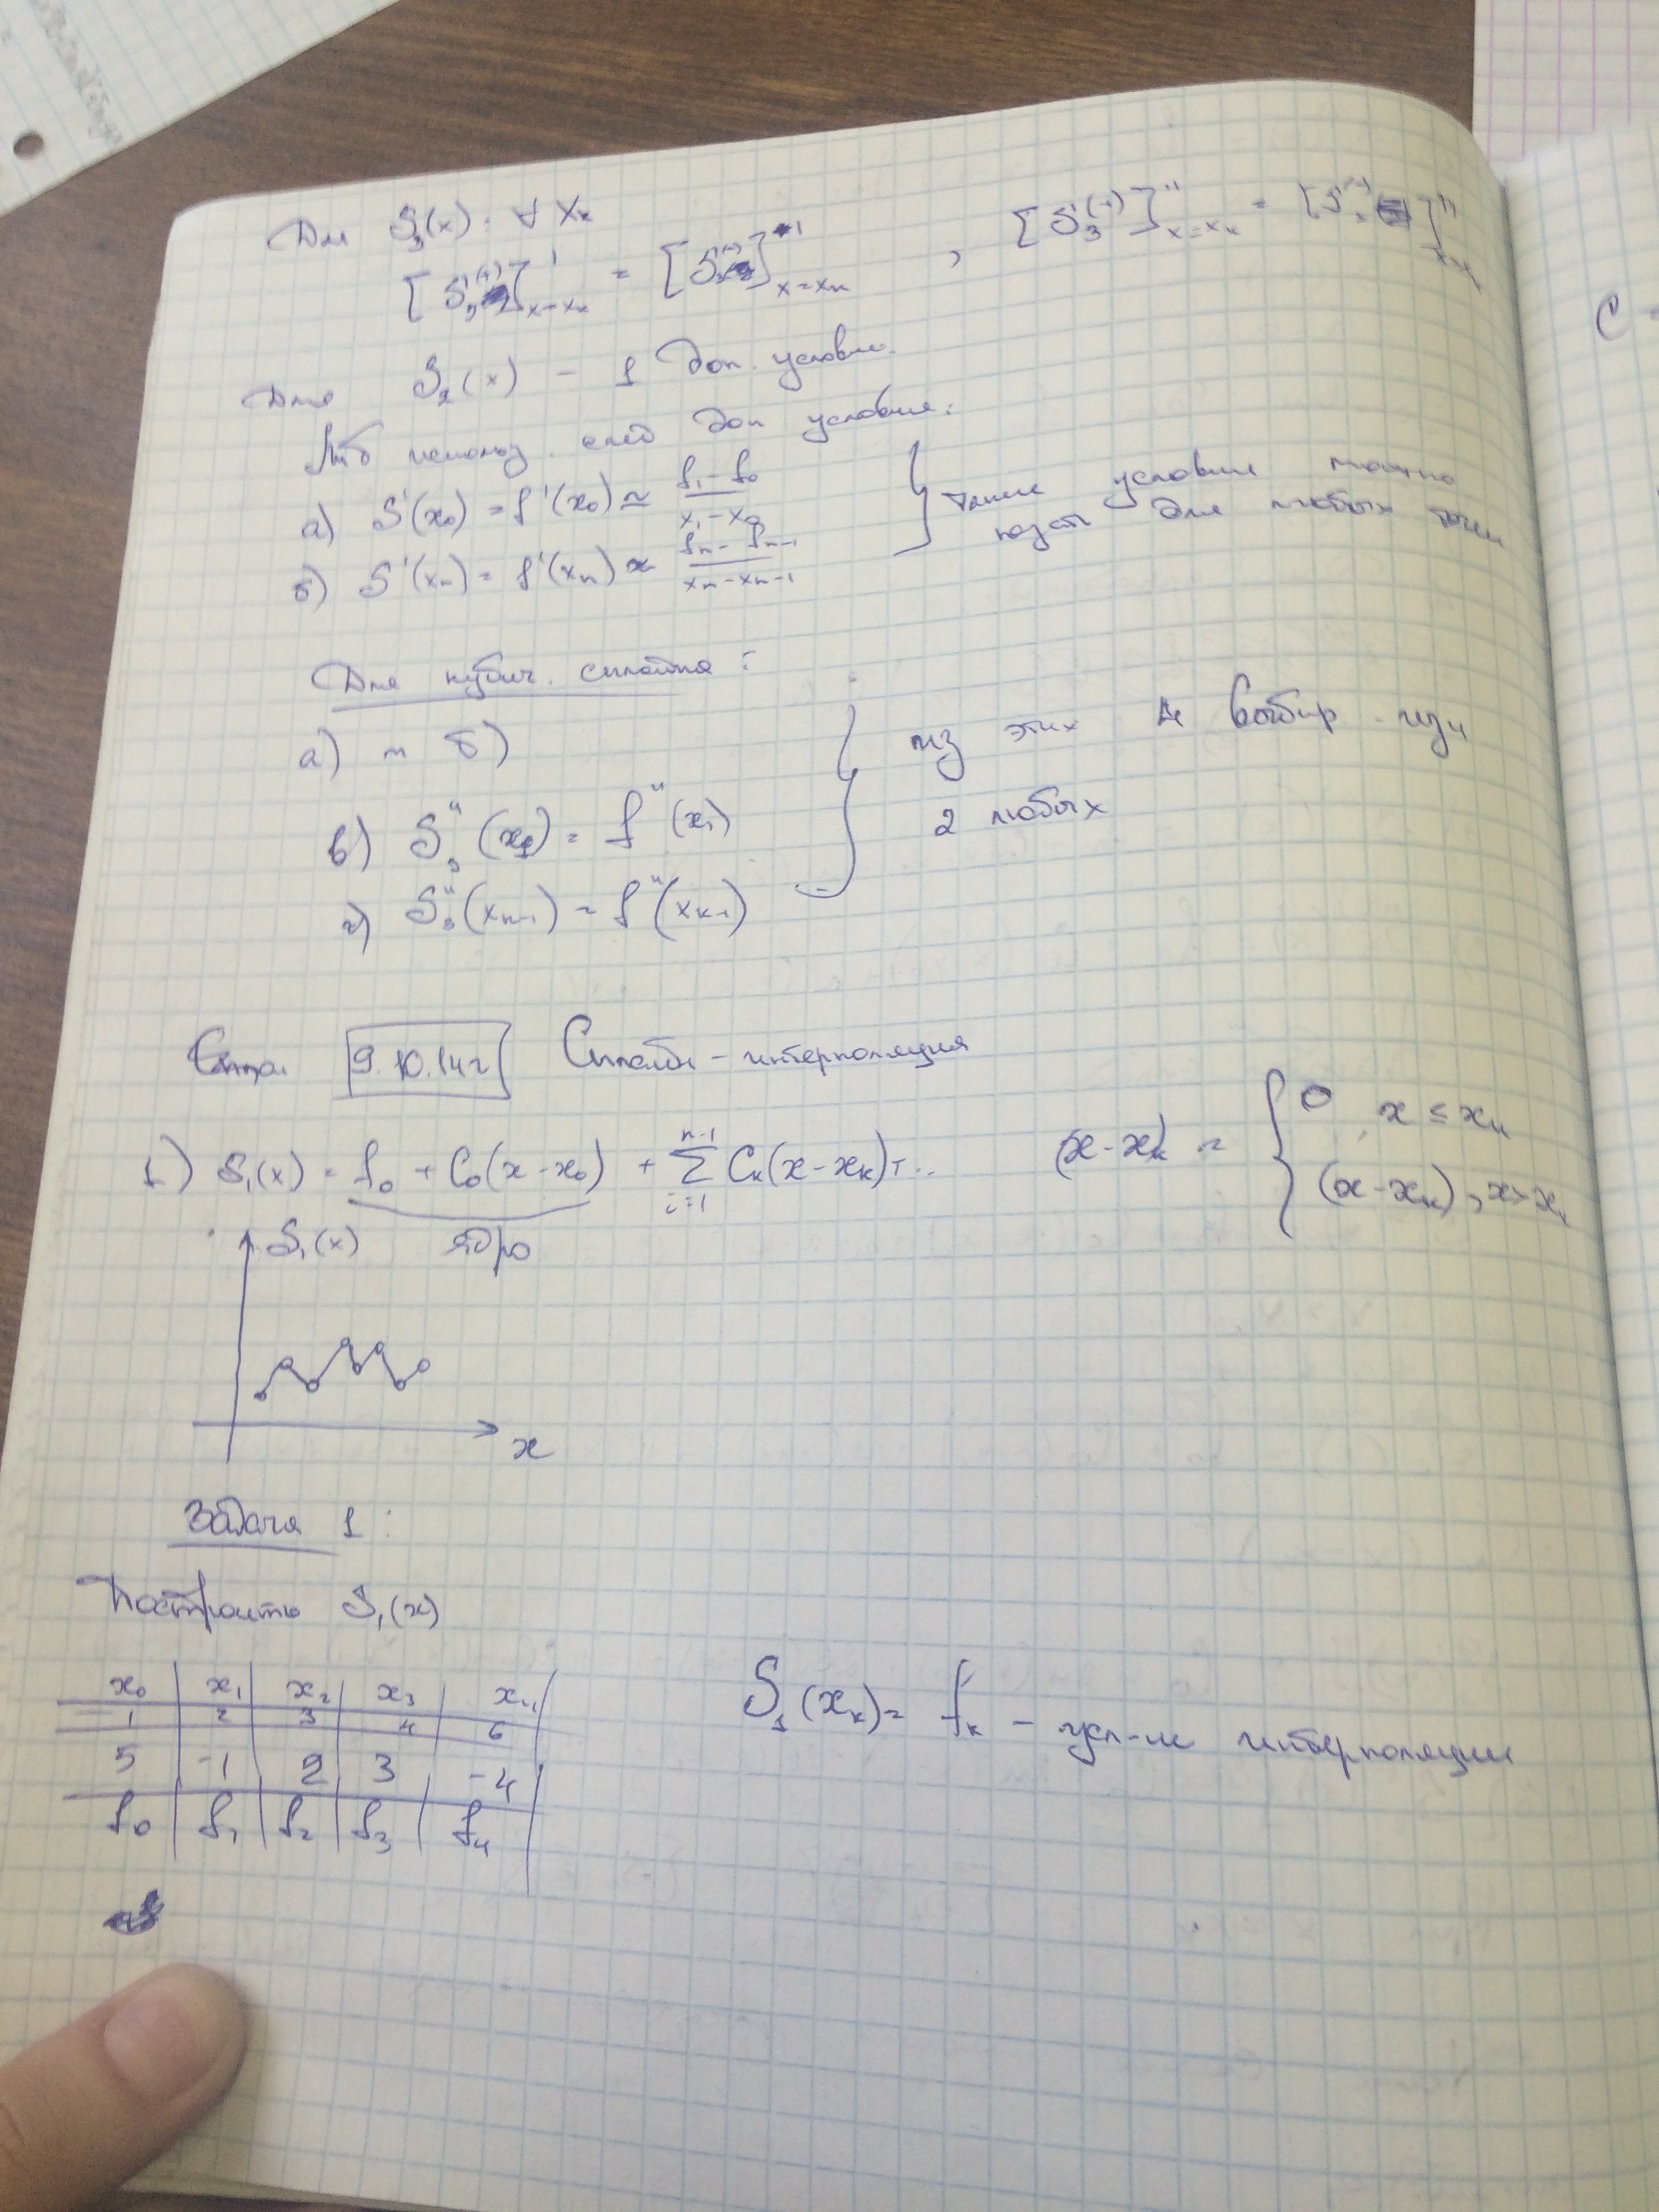 Для S₃(x): ∀ xₖ
[S₃⁽⁺⁾]'ₓ₌ₓₖ = [S₃⁽⁻⁾]'ₓ₌ₓₖ , [S₃⁽⁺⁾]''ₓ₌ₓₖ = [S₃⁽⁻⁾]''ₓ₌ₓₖ
Для S₂(x) – 1 доп. условие.
использ. след доп условие:
а) S'(x₀) = f'(x₀) ≃ (f₁ – f₀)/(x₁ – x₀)
б) S'(xₙ) = f'(xₙ) ≈ (fₙ – fₙ₋₁)/(xₙ – xₙ₋₁)
} такие условие можно
для любых точек
Для кубич. сплайна:
а) и б)
в) S₃''(x₁) = f''(x₁)
г) S₃''(xₙ₋₁) = f''(xₙ₋₁)
} из этих 4 выбир.
2 любых
9.10.14г Сплайн – интерполяция
1) S₁(x) = f₀ + C₀(x – x₀) + Σ Cₖ(x – xₖ)₊ n-1 i=1
(x – xₖ) = { 0, x ≤ xₖ
(x – xₖ), x > xₖ
ядро
S₁(x)
x
Задача 1:
Построить S₁(x)
x₀ | x₁ | x₂ | x₃ | x₄
1 | 2 | 3 | 4 | 6
5 | -1 | 2 | 3 | -4
f₀ | f₁ | f₂ | f₃ | f₄
S₁(xₖ) = fₖ – усл-ие интерполяции